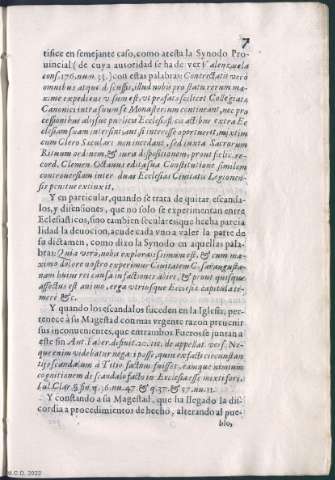 7
tifice en semejante caso, como atesta la Synodo Pro-
uincial (de cuya autoridad se ha de ver Valenzuela
cons. 176. num. 33.) con estas palabras: Contrectatis verò
omnibus atque discussis, illud nobis pro statu rerum ma-
xime expediens visum est, vt præfati scilicet Collegiata
Canonici intra suum se Monasterium contineant, nec pro
cessionibus alijsue publicis Ecclesiast. cis actibus extra Ec
clesiam suam intersint, aut si interesse oportuerit, mixtim
cum Clero Seculari non incedant, sed iuxta Sacrorum
Rituum ordinem, & iuris dispositionem, prout felic. re-
cord. Clemen. Octauus edita sua Constitutione similem
controuersiam inter duas Ecclesias Ciuitatis Legionen-
sis penitus extinxit.
Y en particular, quando se trata de quitar escanda-
los, y disensiones, que no solo se experimentan entre
Eclesiasticos, sino tambien seculares que hecha parcia
lidad la deuocion, acude cada vno a valer la parte de
su dictamen, como dixo la Synodo en aquellas pala-
bras: Quia verò, nobis exploratissimum est, & cum ma-
ximo dolore nostro experimur Ciuitatem Cæsaraugusta-
nam huius rei causa in factiones abire, & prout quisque
affectus est animo, erga vtriusque Ecclesiæ capitula te-
mere &c.
Y quando los escandalos suceden en la Iglesia, per-
tenece à su Magestad con mas vrgente razon preuenir
sus inconuenientes, que entrambos Fueros se juntan a
este fin Ant. Faber. definit. 20. tit. de appellat. vers. Ne-
que enim videbatur nega i posse, quin ex facti circunstan
tijs scandalum à Titio factum fuisset, eamque nimium
cognitionem de scandalo facto in Ecclesia esse mixti fori,
Iul. Clar. §. fin. q. 36. nu. 47. & q. 37. & nu. 11.
Y constando a su Magestad, que ha llegado la dis-
cordia a procedimientos de hecho, alterando al pue-
blo,
B.C.D. 2022